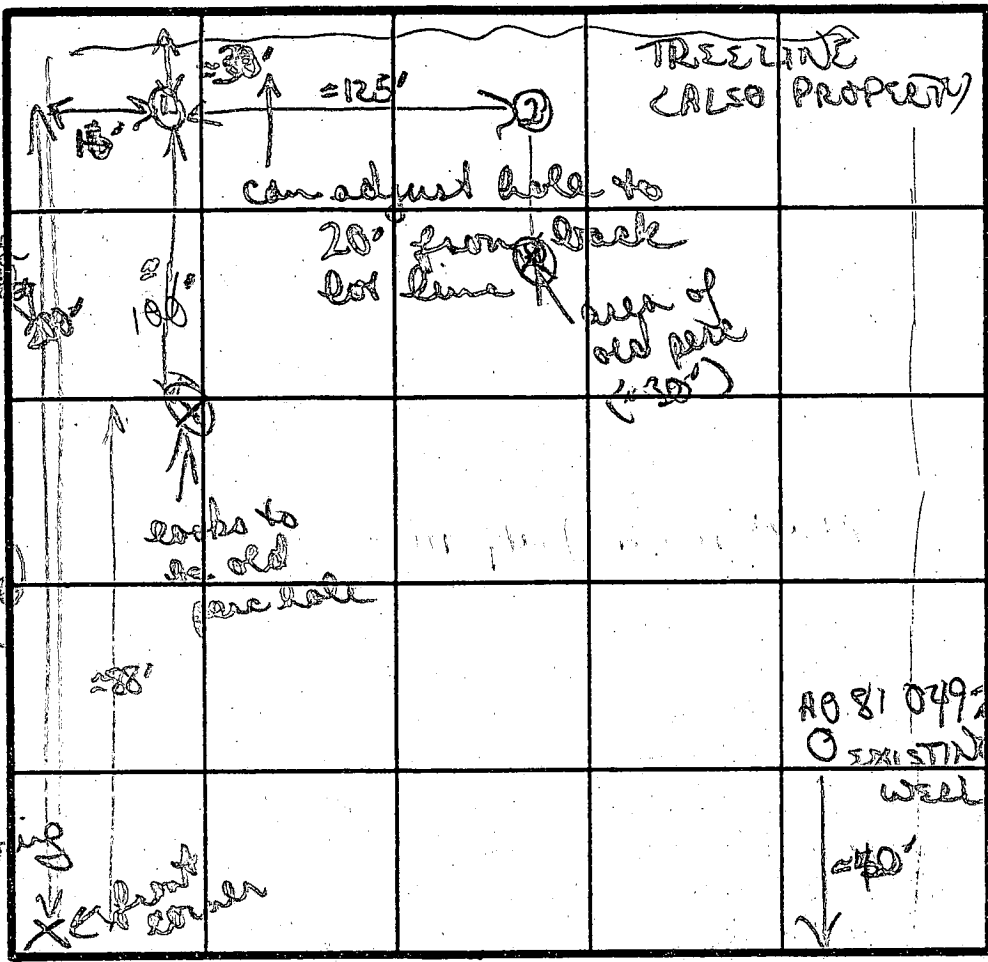 TREELINE
(ALSO PROPERTY)
≈30'
≈125'
1
2
15'
can adjust hole to
20' from back
lot line
area of
old perc
(≈30')
100'
looks to
be old
perc hole
≈88'
AO 81 049
EXISTIN
WELL
front
corner